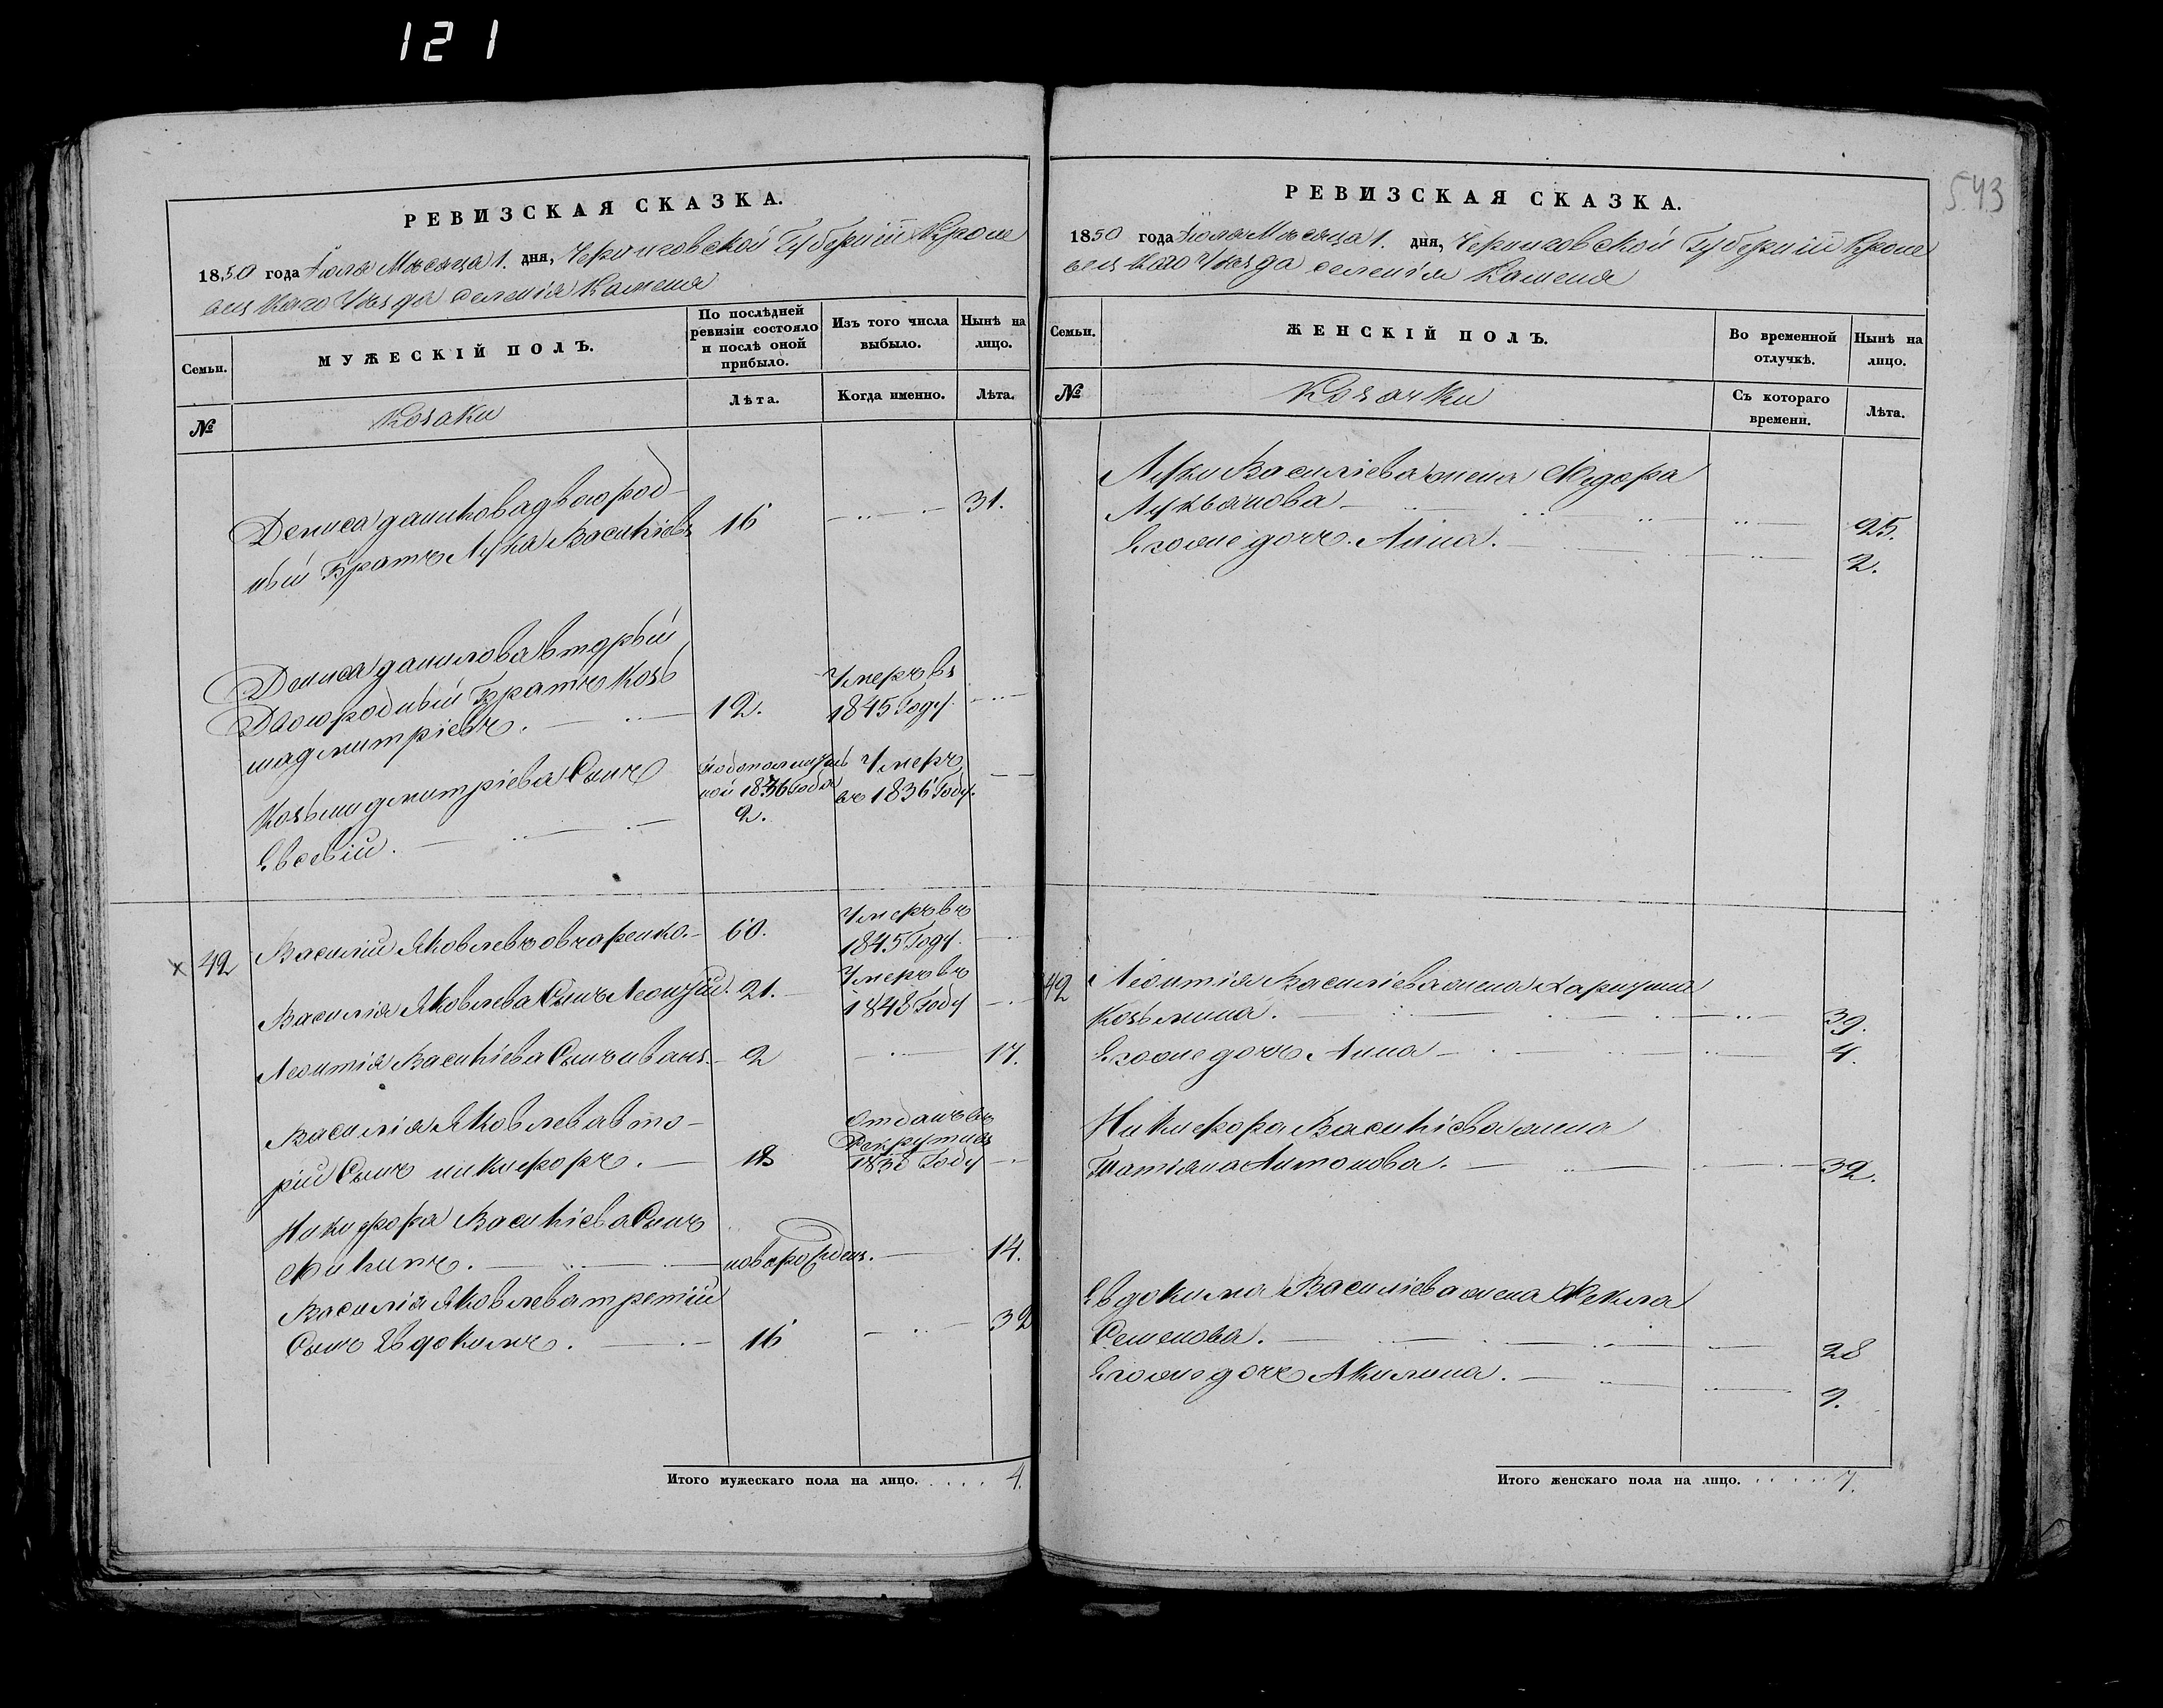 121
543
РЕВИЗСКАЯ СКАЗКА.
1850 года Іюля Мѣсяца 1. дня, Черниговской Губерніи Кроле
вецкаго Уѣзда селенія Каменя
Семьи.
МУЖЕСКІЙ ПОЛЪ.
По послѣдней
ревизіи состояло
и послѣ оной
прибыло.
Изъ того числа
выбыло.
Нынѣ на
лицо.
№
Козаки
Лѣта.
Когда именно.
Лѣта.
Дениса данилова двоюрод-
ный Братъ Лука Василіевъ 16 31.
Дениса данилова вторый
Двоюродный Братъ Козь
ма дмитріевъ. 12. Умеръ въ
1845 Году.
Козьмы дмитріева Сынъ
Евсевій.
1836 Года
2.
Умеръ
въ 1836 Году.
х 42 Василій Яковлевъ овчаренко. 60. Умеръ въ
1845 Году.
Василія Яковлева Сынъ Леонтій. 21. Умеръ въ
1848 Году
Леонтія Василіева Сынъ иванъ. 2 17.
Василія Яковлева вто-
рій Сынъ никифоръ. 18 Отданъ въ
Рекруты въ
1838 Году
Никифора Василіева Сынъ
Филипъ. новорожден. 14.
Василія Яковлева третій
Сынъ Евдокимъ. 16 32
Итого мужескаго пола на лицо. . . . . 4.
РЕВИЗСКАЯ СКАЗКА.
1850 года Іюля Мѣсяца 1. дня, Черниговской Губерніи Кроле
вецкаго Уѣзда селенія Каменя
Семьи.
ЖЕНСКІЙ ПОЛЪ.
Во временной
отлучкѣ.
Нынѣ на
лицо.
№
Козачки
Съ котораго
времени.
Лѣта.
Луки Василіева жена Федора
Лукьянова. 25.
Егоже дочь Анна. 2.
42 Леонтія Василіева жена Харитина
Козьмина. 39.
Егоже дочь Анна 4.
Никифора Василіева жена
Татіяна Антонова. 32.
Евдокима Василіева жена Фекла
Семенова. 28
Егоже дочь Акилина.
Итого женскаго пола на лицо. . . . . . 7.